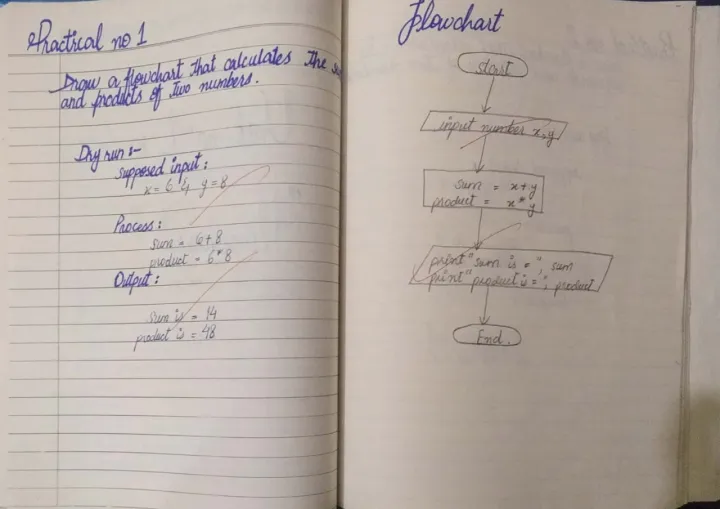 Practical no 1
Draw a flowchart that calculates the
and products of two numbers.
Dry run :-
Supposed input :
x = 6 & y = 8
Process :
sum = 6+8
product = 6*8
Output :
sum is = 14
product is = 48
Flowchart
Start
input number x,y
sum = x+y
product = x*y
print "sum is = ", sum
print "product is = ", product
End.